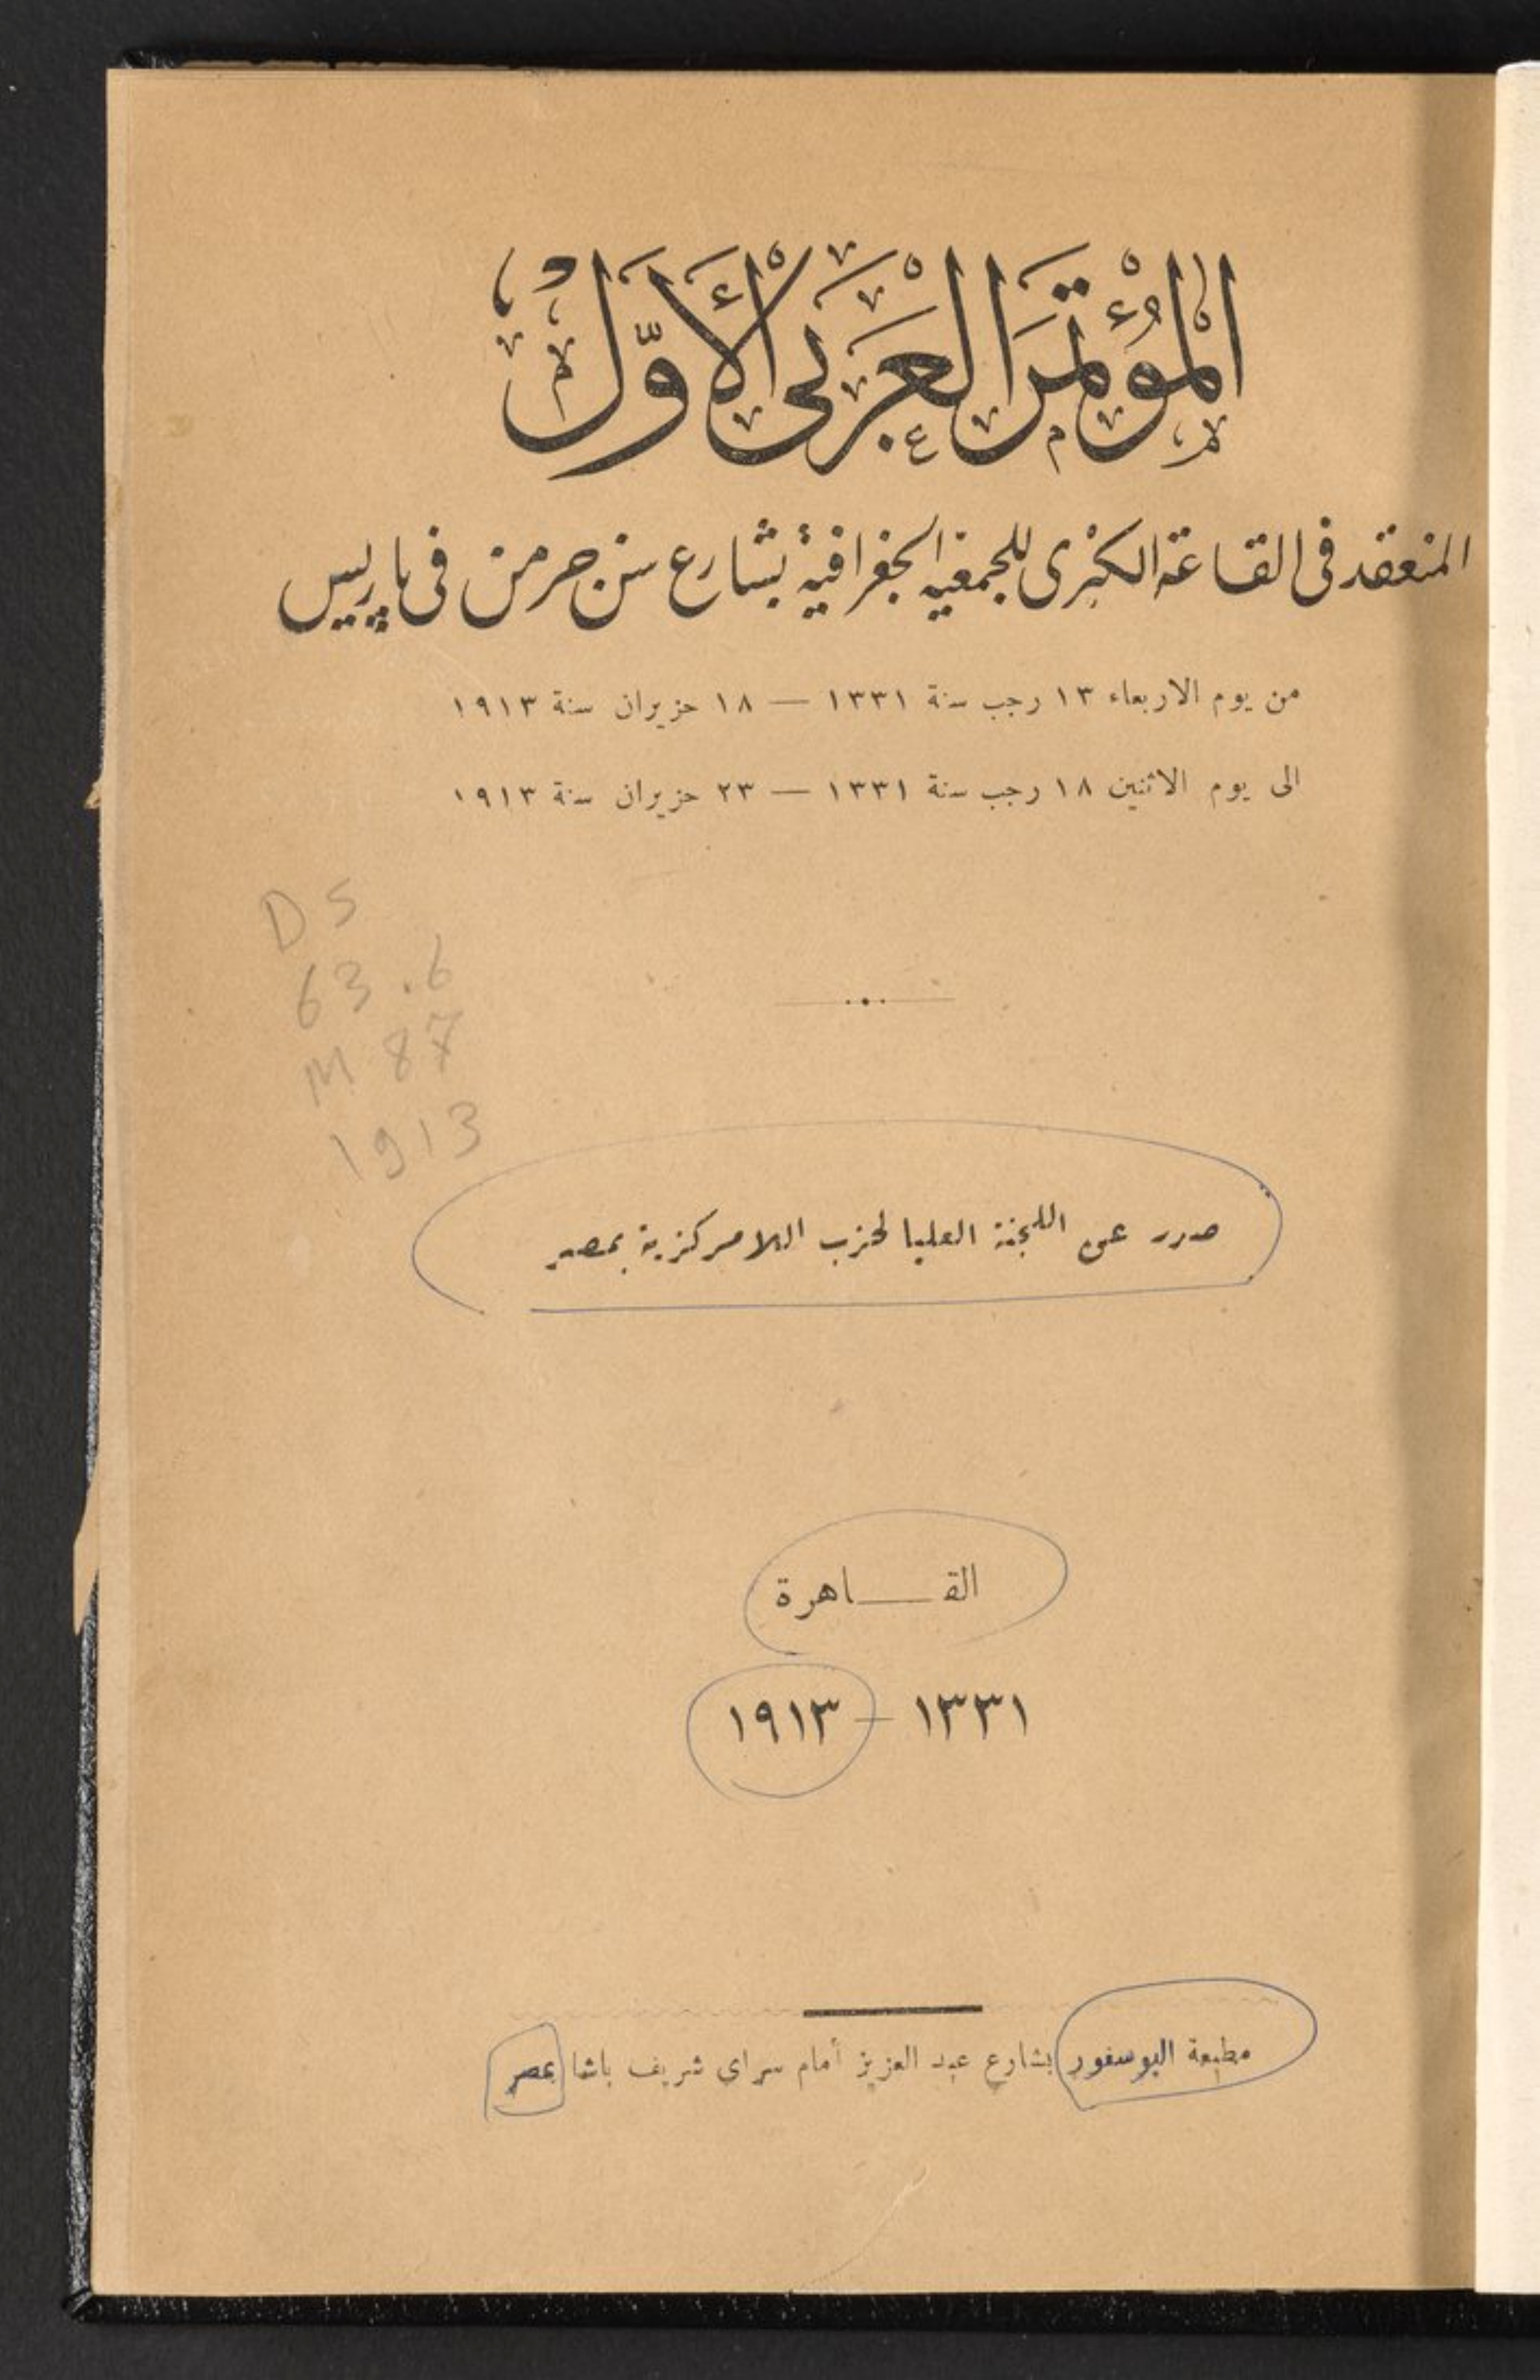 المؤتمر العربي الأول
المنعقد فى القاعة الكبرى للجمعية الجغرافية بشارع سن جرمن فى پاريس
من يوم الاربعاء ١٣ رجب سنة ١٣٣١ — ١٨ حزيران سنة ١٩١٣
الى يوم الاثنين ١٨ رجب سنة ١٣٣١ — ٢٣ حزيران سنة ١٩١٣
DS
63.6
M87
1913
صدر عن اللجنة العليا لحزب اللامركزية بمصر
القاهرة
١٣٣١ — ١٩١٣
مطبعة البوسفور بشارع عبد العزيز أمام سراي شريف باشا بمصر